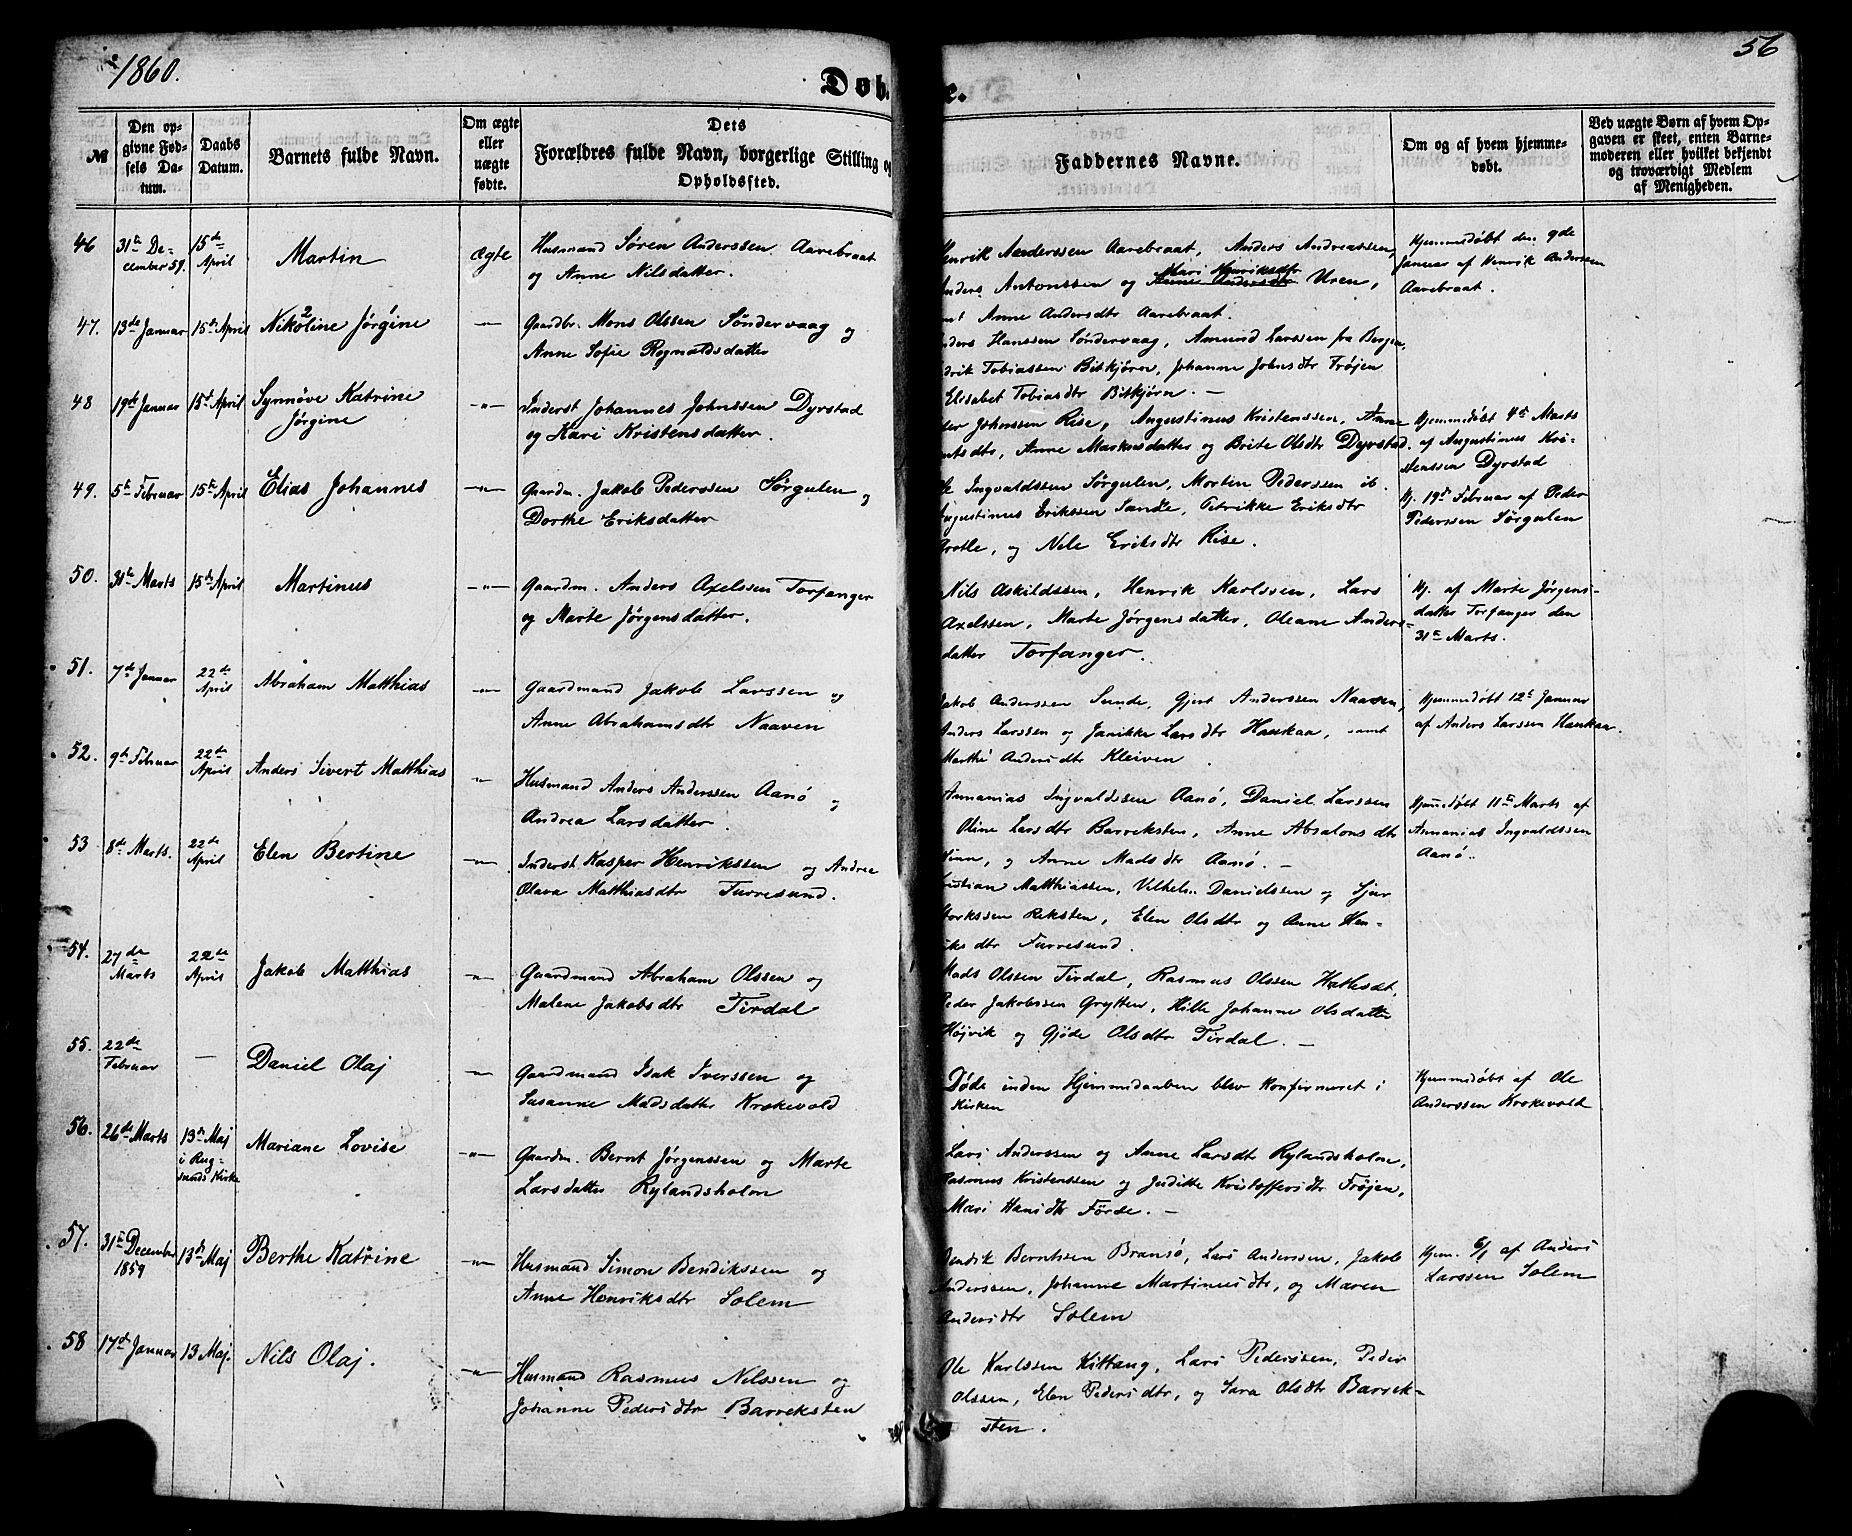 1860.
56
Døb
e.
№
Den op-
givne Fød-
sels Da-
tum.
Daabs
Datum.
Barnets fulde Navn.
Om ægte
eller
uægte
fødte.
Dets
Forældres fulde Navn, borgerlige Stilling og
Opholdssted.
Faddernes Navne.
Om og af hvem hjemme-
døbt.
Ved uægte Børn af hvem Op-
gaven er skeet, enten Barne-
moderen eller hvilket bekjendt
og troværdigt Medlem
af Menigheden.
46
31te De-
cember 59.
15de
April
Martin
Ægte
Husmand Søren Anderssen Aarebraat
og Anne Nilsdatter.
Henrik Anderssen Aarebraat, Anders Andreassen,
Anders Antonssen og Mari Henriksdtr Uren,
samt Anne Andersdtr Aarebraat.
Hjemmedøbt den 9de
Januar af Henrik Anderssen
Aarebraat.
47.
13de Januar
15de April
Nikoline Jørgine
-"-
Gaardbr. Mons Olssen Søndervaag og
Anne Sofie Rognaldsdatter
Anders Hanssen Søndervaag, Amund Larssen fra Bergen,
Tobiassen Bitkjørn, Johanne Johnsdtr Frøjen
Elisabet Tobiasdtr Bitkjørn. -
48
19de Januar
15de April
Synnøve Katrine
Jørgine
-"-
Inderst Johannes Johnssen Dyrstad
og Kari Kristensdatter.
Johnssen Rise, Augustinus Kristenssen, Anne
dtr, Anne Markusdatter og Brite Olsdtr Dyrstad.
Hjemmedøbt 4de Marts
af Augustinus Kri-
stenssen Dyrstad
49.
5te Februar
15de April
Elias Johannes
-"-
Gaardm. Jakob Pederssen Sørgulen og
Dorthe Eriksdatter
Ingvaldssen Sørgulen, Morten Pederssen ib.
Augustinus Erikssen Sande, Petrikke Eriksdtr
Grotle, og Nele Eriksdtr Rise.
Hj. 19de Februar af Peder
Pederssen Sørgulen
50.
31te Marts
15de April
Martinus
-"-
Gaardm. Anders Axelssen Torfanger
og Marte Jørgensdatter.
Nils Askildssen, Henrik Karlssen, Lars
Axelssen, Marte Jørgensdatter, Oleane Anders-
datter Torfanger.
Hj. af Marte Jørgens-
datter Torfanger den
31te Marts.
51.
7de Januar
22de
April
Abraham Matthias
-"-
Gaardmand Jakob Larssen og
Anne Abrahamsdtr Naaven
Jakob Anderssen Sunde, Gjert Anderssen Naaven,
Anders Larssen og Janikke Larsdtr Haukaa, samt
Marthe Andersdtr Kleiven.
Hjemmedøbt 12te Januar
af Anders Larssen Haukaa.
52.
9de Februar
22de
April
Anders Sivert Matthias
-"-
Husmand Anders Anderssen Aanø og
Andrea Larsdatter.
Annanias Ingvaldssen Aanø, Daniel Larssen
Oline Larsdtr Barreksten, Anne Absalonsdtr
og Anne Madsdtr Aanø. -
Hjemmedøbt 11te Marts af
Annanias Ingvaldssen
Aanø.
53
8de Marts.
22de
April
Elen Bertine
-"-
Inderst Kasper Henrikssen og Andrea
Olava Matthiasdtr Furresund.
Kristian Matthiassen, Vilhelm Danielssen og Sjur
Reksten, Elen Olsdtr og Anne Hen-
riksdtr Furresund.
54.
27de
Marts
22de
April
Jakob Matthias
-"-
Gaardmand Abraham Olssen og
Malene Jakobsdtr Tirdal
Mads Olssen Tirdal, Rasmus Olssen Hatleset,
Peder Jakobssen Grytten, Hille Johanne Olsdatter
Højvik og Gjøde Olsdtr Tirdal. -
55.
22de
Februar
-
Daniel Olaj
-"-
Gaardmand Isak Iverssen og
Susanne Madsdatter Krokevold
Døde inden Hjemmedaaben blev konfirmeret i
Kirken
Hjemmedøbt af Ole
Anderssen Krokevold
56.
26de Marts
13de Maj
i Rug-
sunds Kirke
Mariane Lovise
-"-
Gaardm. Bernt Jørgenssen og Marte
Larsdatter Rylandsholm
Lars Anderssen og Anne Larsdtr Rylandsholm,
Rasmus Kristenssen og Juditte Kristoffersdtr Frøjen,
Mari Hansdtr Førde. -
57.
31te December
1859
13de Maj
Berthe Katrine
-"-
Husmand Simon Bendikssen og
Anne Henriksdtr Solem
Bendik Berntssen Bransø, Lars Anderssen, Jakob
Anderssen, Johanne Martinusdtr, og Maren
Andersdtr Solem
Hjem. 6/1 af Anders
Larssen Solem
58
17de Januar
13 Maj.
Nils Olaj.
-"-
Husmand Rasmus Nilssen og
Johanne Pedersdtr Barreksten
Ole Karlssen Kittang, Lars Pederssen, Peder
Olssen, Elen Pedersdtr, og Sara Olsdtr Barrek-
sten.